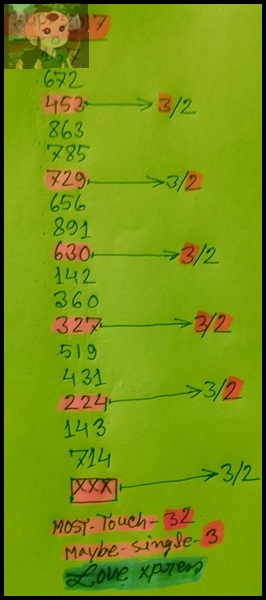 672
453 → 3/2
863
785
729 → 3/2
656
891
630 → 3/2
142
360
327 → 3/2
519
431
224 → 3/2
143
714
XXX → 3/2
MOST-Touch-32
Maybe-single-3
Love xpress